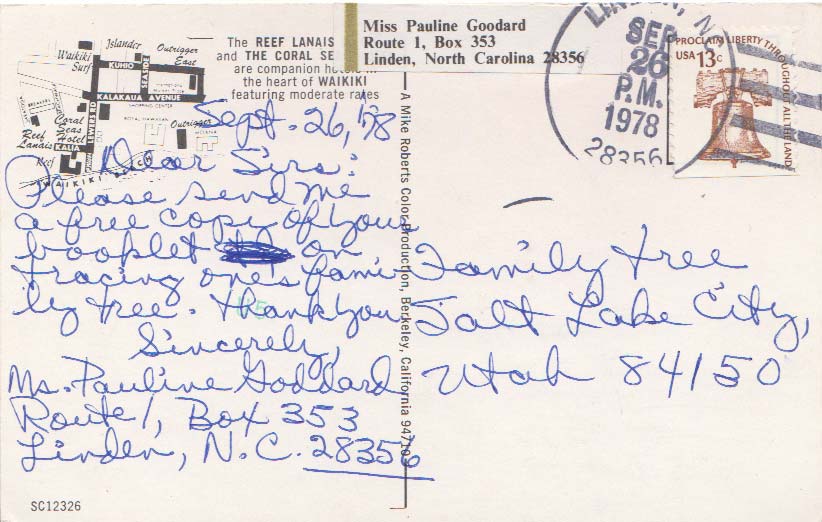 Islander
Outrigger East
Waikiki Surf
KUHIO
SEASIDE
KALAKAUA AVENUE
SHOPPING CENTER
ROYAL HAWAIIAN
Outrigger
LEWERS RD
Coral Seas Hotel
KALIA
Reef Lanais
Reef
WAIKIKI BEACH
The REEF LANAIS
and THE CORAL SE
are companion hotels in
the heart of WAIKIKI
featuring moderate rates
Miss Pauline Goodard
Route 1, Box 353
Linden, North Carolina 28356
LINDEN, N
SEP
26
P.M.
1978
28356
PROCLAIM LIBERTY THROUGHOUT ALL THE LAND
USA 13c
Sept. 26, 1978
Dear Sirs:
Please send me
a free copy of your
booplet on
tracing one's fami
ly tree. Thank you
Sincerely,
Ms. Pauline Goddard
Route 1, Box 353
Linden, N.C. 28356
A Mike Roberts Color Production, Berkeley, California 94710
Family tree
Salt Lake City,
Utah 84150
SC12326